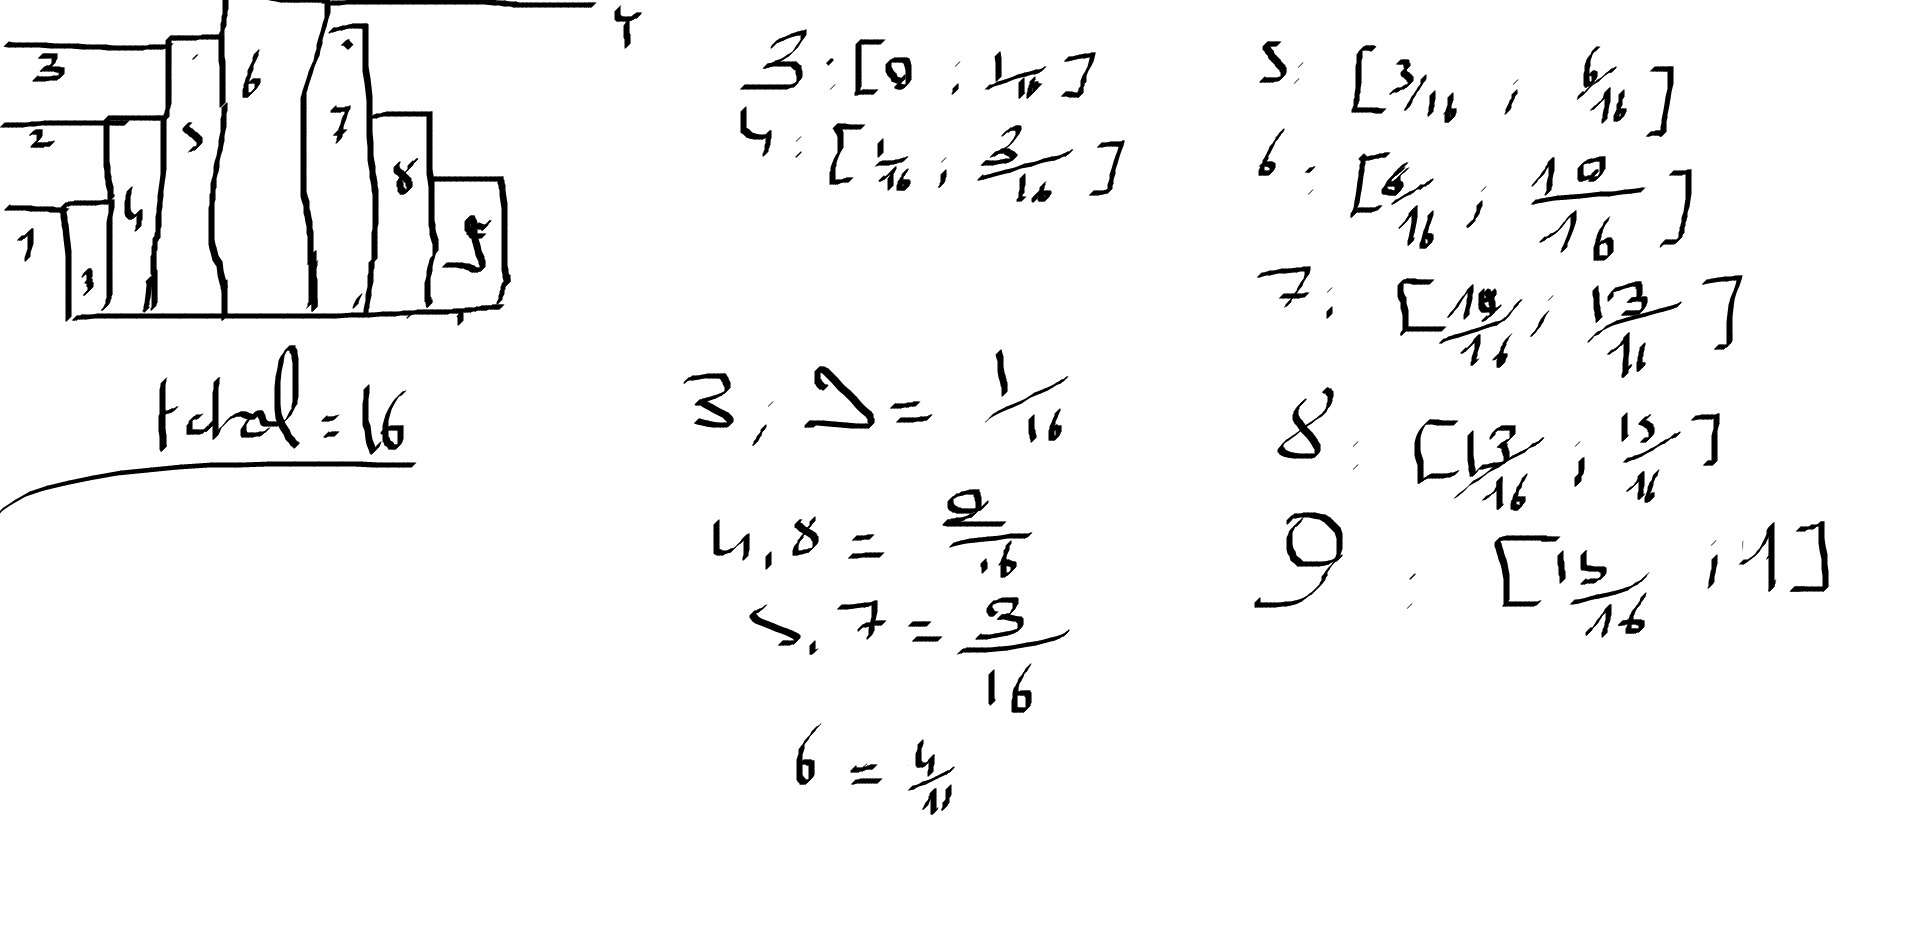 3
2
1
3
4
5
6
7
8
9
4
total = 16
3 : [0 , 1/16]
4 : [1/16 , 3/16]
3 , 9 = 1/16
4, 8 = 2/16
5. 7 = 3/16
6 = 4/16
5 : [3/16 , 6/16]
6 : [6/16 , 10/16]
7 : [10/16 , 13/16]
8 : [13/16 , 15/16]
9 : [15/16 , 1]